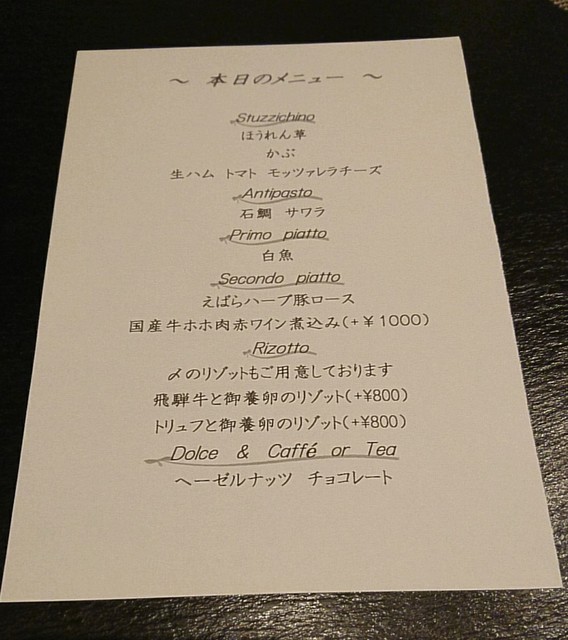 ～ 本日のメニュー ～
Stuzzichino
ほうれん草
かぶ
生ハム トマト モッツァレラチーズ
Antipasto
石鯛 サワラ
Primo piatto
白魚
Secondo piatto
えばらハーブ豚ロース
国産牛ホホ肉赤ワイン煮込み(+¥1000)
Rizotto
〆のリゾットもご用意しております
飛騨牛と御養卵のリゾット(+¥800)
トリュフと御養卵のリゾット(+¥800)
Dolce & Caffé or Tea
ヘーゼルナッツ チョコレート